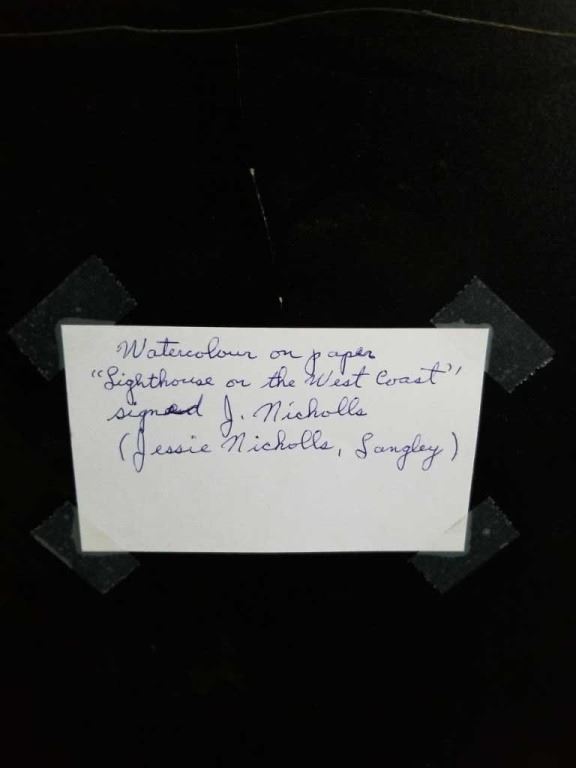 Watercolour on paper
"Lighthouse on the West Coast"
signed J. Nicholls
(Jessie Nicholls, Langley)